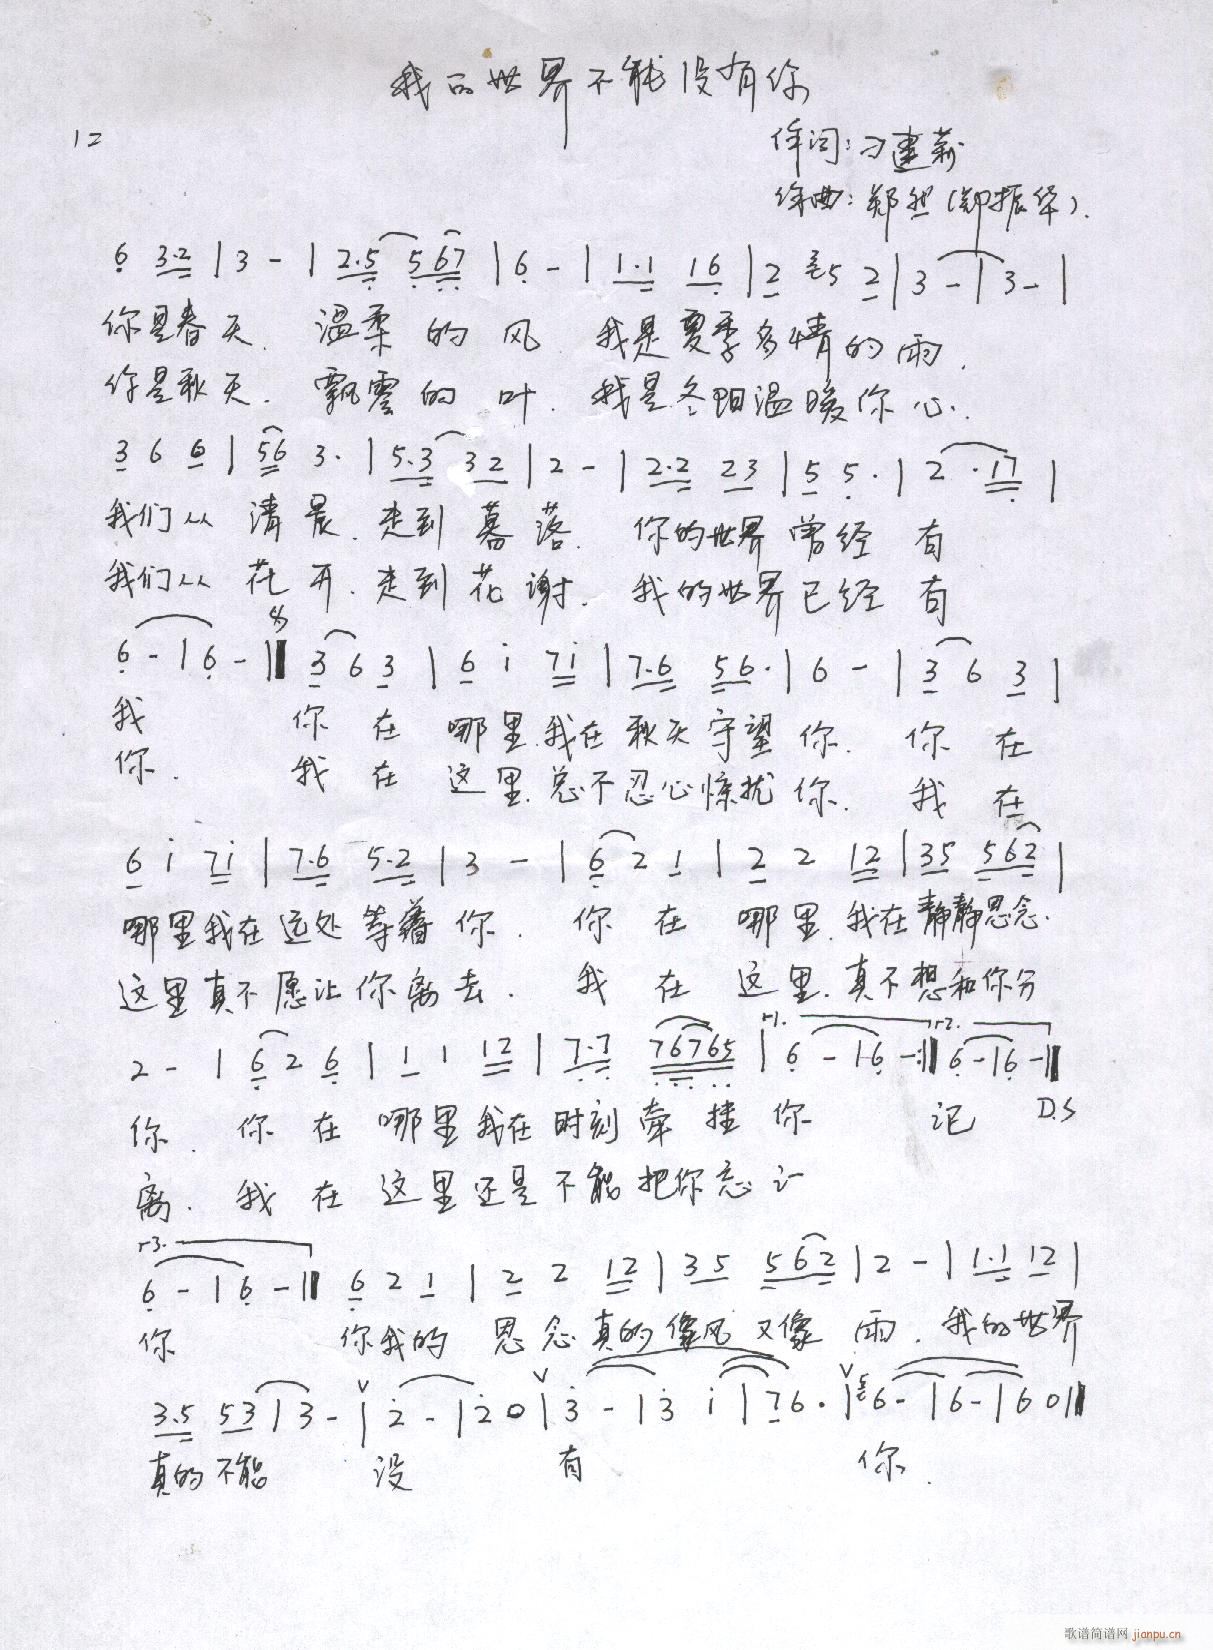 我的世界不能没有你
12
作词:刁建莉
作曲:郑然(郑振华).
6 3·2 | 3 - | 2·5 5 67 | 6 - | 1·1 16 | 2 5 2 | 3 - | 3 - |
你是春天. 温柔的风. 我是夏季多情的雨.
你是秋天. 飘零的叶. 我是冬阳温暖你心.
3 6 6 | 56 3· | 5·3 32 | 2 - | 2·2 23 | 5 5· | 2 ·17 |
我们从清晨.走到暮落. 你的世界曾经有
我们从花开.走到花谢. 我的世界已经有
6 - | 6 - || 3 6 3 | 6 i 7i | 7·6 56· | 6 - | 3 6 3 |
我 你在哪里.我在秋天守望你. 你在
你. 我在这里.总不忍心惊扰你. 我在
6 i 7i | 7·6 5·2 | 3 - | 6 2 1 | 2 2 12 | 35 562 |
哪里我在远处等着你. 你在哪里.我在静静思念.
这里真不愿让你离去. 我在这里.真不想和你分
r1. r2.
2 - | 6 2 6 | 1 1 12 | 7·7 76765 | 6 - | 6 - :|| 6 - | 6 - ||
D.S
你. 你在哪里我在时刻牵挂你 记
离. 我在这里还是不能把你忘
r3.
6 - | 6 - || 6 2 1 | 2 2 12 | 35 562 | 2 - | 1·1 12 |
你 你我的思念真的像风又像雨.我的世界
3·5 53 | 3 - | 2 - | 2 0 | 3 - | 3 i | 7 6· | 6 - | 6 - | 6 0 ||
真的不能没有你.
歌谱简谱网 jianpu.cn